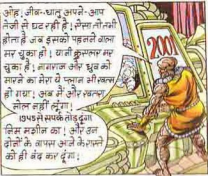 ओह, जीव-धातु अपने-आप
तेजी से घट रही है! ऐसा तो तभी
होता है जब इसको पहनने वाला
मर चुका हो! यानी क्रूरपाशा मर
चुका है! नागराज और ध्रुव को
मारने का मेरा ये प्लान भी खत्म
हो गया! अब मैं और खतरा
मोल नहीं लूंगा!
तोड़ दूंगा
मशीन का! और उन
दोनों के वापस आने के रास्ते
को ही बंद कर दूंगा!
2001